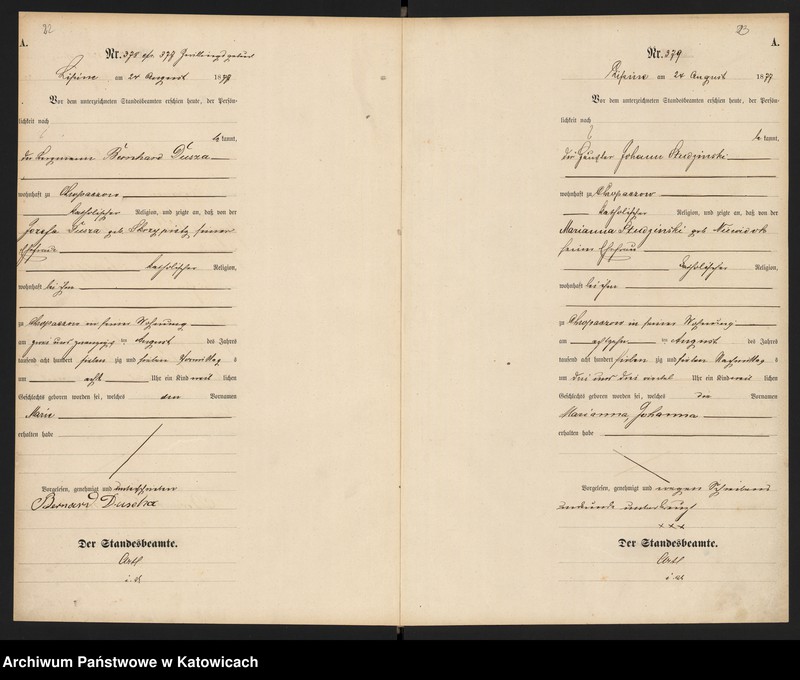 22
A.
Nr. 378
Lipine am 24 August 1879
Vor dem unterzeichneten Standesbeamten erschien heute, der Persön-
lichkeit nach
be kannt,
der Bergmann Bernhard Dusza
wohnhaft zu Chropaczow
katholischer Religion, und zeigte an, daß von der
Josefa Dusza geb. Skorzpietz seiner
Ehefrau
katholischer Religion,
wohnhaft bei ihm
zu Chropaczow in seiner Wohnung
am zwei und zwanzig ten August des Jahres
tausend acht hundert sieben zig und sieben Vormittag s
um acht Uhr ein Kind weib lichen
Geschlechts geboren worden sei, welches den Vornamen
Marie
erhalten habe
Vorgelesen, genehmigt und unterschrieben
Bernard Duscha
Der Standesbeamte.
23
A.
Nr. 379
Lipine am 24 August 1879
Vor dem unterzeichneten Standesbeamten erschien heute, der Persön-
lichkeit nach
be kannt,
der Häusler Johann
wohnhaft zu Chropaczow
katholischer Religion, und zeigte an, daß von der
Marianna geb.
seiner Ehefrau
katholischer Religion,
wohnhaft bei ihm
zu Chropaczow in seiner Wohnung
am August des Jahres
tausend acht hundert sieben zig und sieben Nachmittag s
um drei und drei viertel Uhr ein Kind weib lichen
Geschlechts geboren worden sei, welches den Vornamen
Marianna, Johanna
erhalten habe
Vorgelesen, genehmigt und wegen Schreibens
unkunde unterkreuzt
xxx
Der Standesbeamte.
Archiwum Państwowe w Katowicach